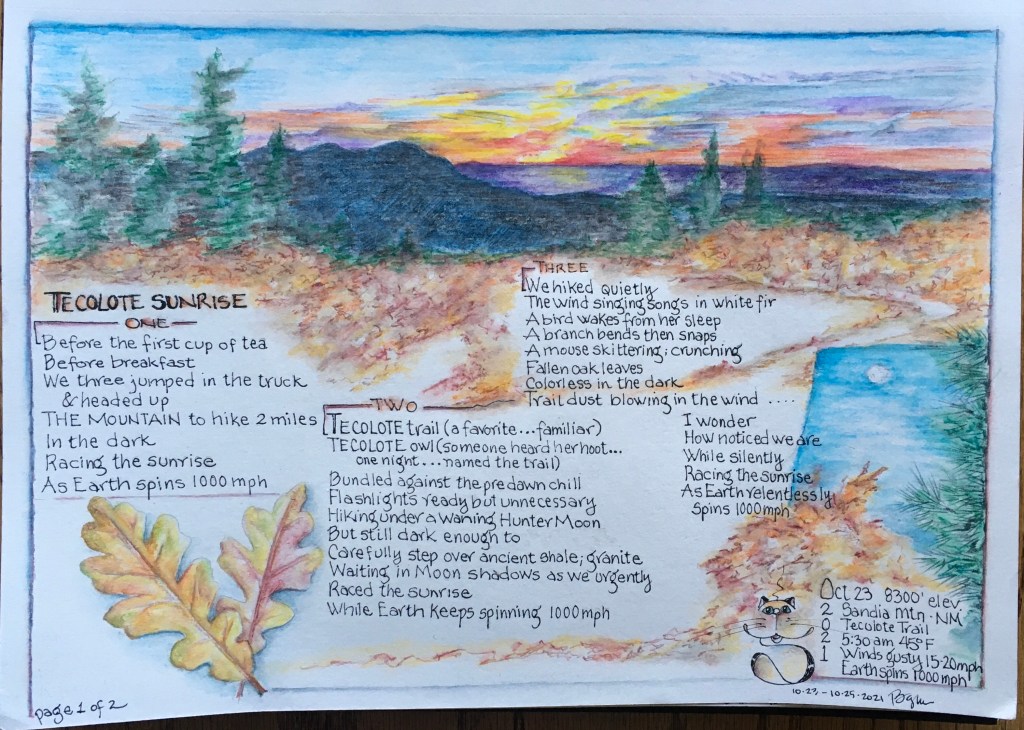 TECOLOTE SUNRISE
ONE
Before the first cup of tea
Before breakfast
We three jumped in the truck
& headed up
THE MOUNTAIN to hike 2 miles
In the dark
Racing the sunrise
As Earth spins 1000 mph
TWO
TECOLOTE trail (a favorite...familiar)
TECOLOTE owl (someone heard her hoot...
one night...named the trail)
Bundled against the predawn chill
Flashlights ready but unnecessary
Hiking under a waning Hunter Moon
But still dark enough to
Carefully step over ancient shale; granite
Waiting in Moon shadows as we urgently
Raced the sunrise
While Earth keeps spinning 1000 mph
THREE
We hiked quietly
The wind singing songs in white fir
A bird wakes from her sleep
A branch bends then snaps
A mouse skittering; crunching
Fallen oak leaves
Colorless in the dark
Trail dust blowing in the wind ....
I wonder
How noticed we are
While silently
Racing the sunrise
As Earth relentlessly
spins 1000 mph
Oct 23 8300' elev.
2 Sandia Mtn. NM
0 Tecolote Trail
2 5:30 am 45°F
1 Winds gusty 15-20mph
Earth spins 1000 mph
10-23,-10-25-2021
page 1 of 2